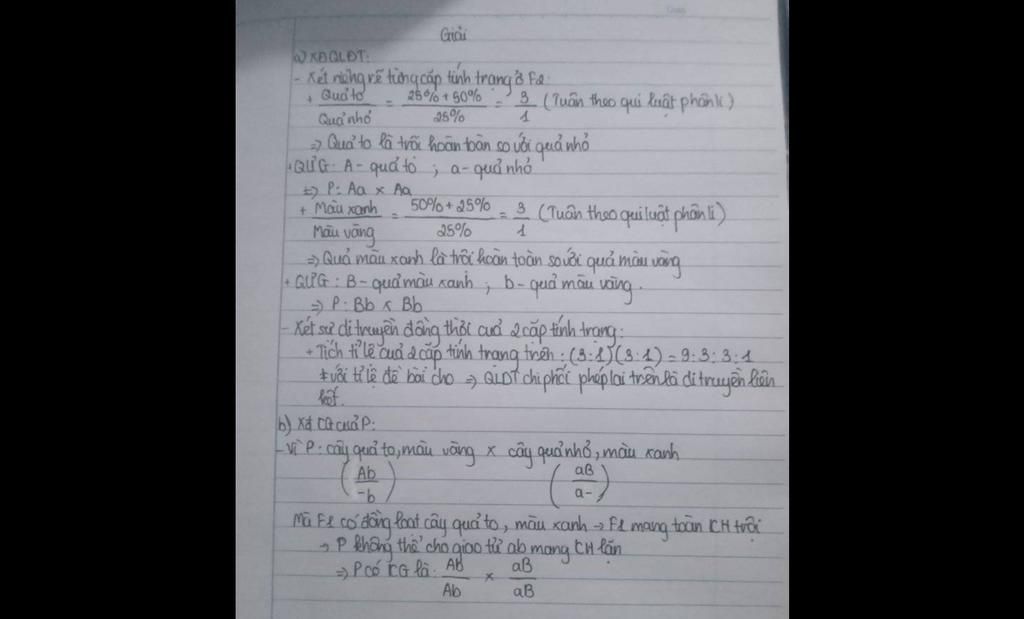 Giải
a) XĐQLDT:
- Xét riêng rẽ từng cặp tính trạng ở F2:
+ Quả to / Quả nhỏ = 25% + 50% / 25% = 3 / 1 (Tuân theo qui luật phân li)
=> Quả to là trội hoàn toàn so với quả nhỏ
+ QƯG: A - quả to ; a - quả nhỏ
=> P: Aa x Aa
+ Màu xanh / Màu vàng = 50% + 25% / 25% = 3 / 1 (Tuân theo qui luật phân li)
=> Quả màu xanh là trội hoàn toàn so với quả màu vàng
+ QƯG: B - quả màu xanh ; b - quả màu vàng.
=> P: Bb x Bb
- Xét sự di truyền đồng thời của 2 cặp tính trạng:
+ Tích tỉ lệ của 2 cặp tính trạng trên: (3:1)(3:1) = 9:3:3:1
≠ với tỉ lệ đề bài cho => QLDT chi phối phép lai trên là di truyền liên
kết.
b) Xđ KG của P:
- Vì P: cây quả to, màu vàng x cây quả nhỏ, màu xanh
(Ab / -b) (aB / a-)
Mà F1 có đồng loạt cây quả to, màu xanh → F1 mang toàn KH trội
→ P không thể cho giao tử ab mang KH lặn
=> P có KG là: Ab / Ab x aB / aB